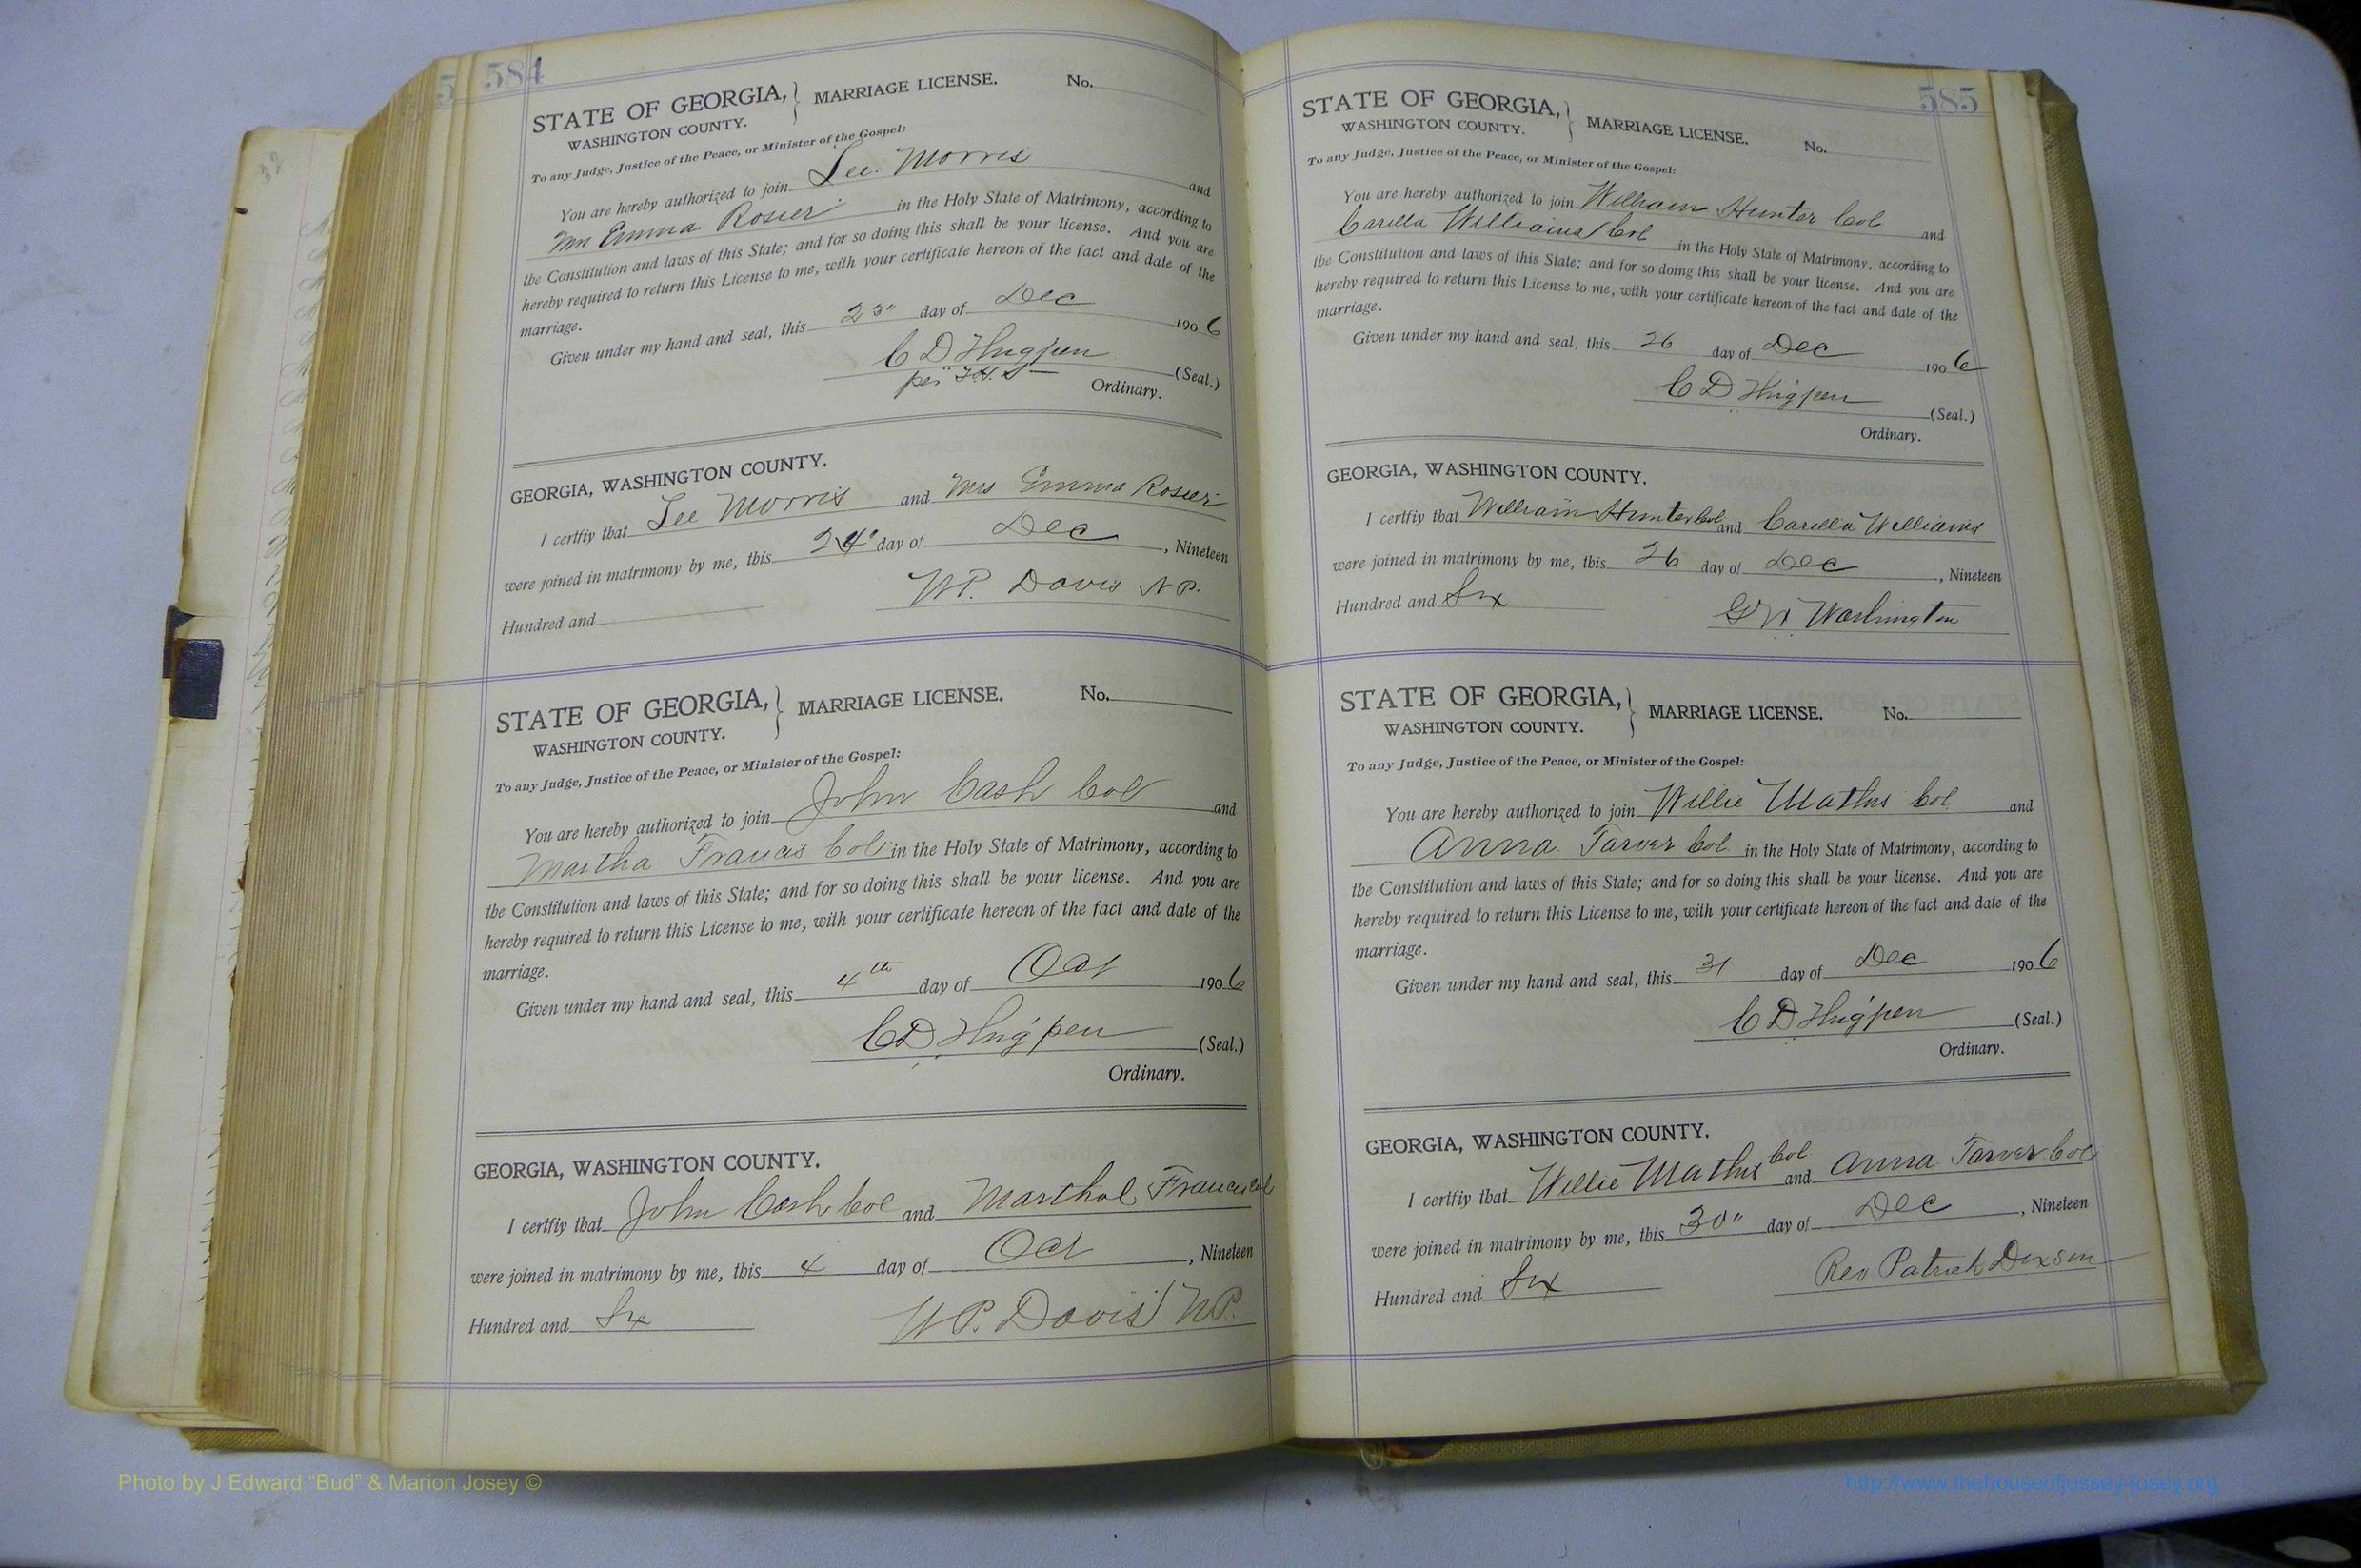 584
STATE OF GEORGIA, } MARRIAGE LICENSE. No.
WASHINGTON COUNTY.
To any Judge, Justice of the Peace, or Minister of the Gospel:
You are hereby authorized to join Lee Morris and
Mrs Emma Rosier in the Holy State of Matrimony, according to
the Constitution and laws of this State; and for so doing this shall be your license. And you are
hereby required to return this License to me, with your certificate hereon of the fact and date of the
marriage.
Given under my hand and seal, this 23" day of Dec 1906
C D Thigpen (Seal.)
per Ordinary.
GEORGIA, WASHINGTON COUNTY.
I certfiy that Lee Morris and Mrs Emma Rosier
were joined in matrimony by me, this 24" day of Dec, Nineteen
Hundred and W.P. Davis N P.
STATE OF GEORGIA, } MARRIAGE LICENSE. No.
WASHINGTON COUNTY.
To any Judge, Justice of the Peace, or Minister of the Gospel:
You are hereby authorized to join John Cash Col and
Martha Francis Col in the Holy State of Matrimony, according to
the Constitution and laws of this State; and for so doing this shall be your license. And you are
hereby required to return this License to me, with your certificate hereon of the fact and date of the
marriage.
Given under my hand and seal, this 4th day of Oct 1906
C D Thigpen (Seal.)
Ordinary.
GEORGIA, WASHINGTON COUNTY.
I certfiy that John Cash Col and Marthal Francis Col
were joined in matrimony by me, this 4 day of Oct, Nineteen
Hundred and Six W.P. Davis N.P.
585
STATE OF GEORGIA, } MARRIAGE LICENSE. No.
WASHINGTON COUNTY.
To any Judge, Justice of the Peace, or Minister of the Gospel:
You are hereby authorized to join William Hunter Col and
Carilla Williams Col in the Holy State of Matrimony, according to
the Constitution and laws of this State; and for so doing this shall be your license. And you are
hereby required to return this License to me, with your certificate hereon of the fact and date of the
marriage.
Given under my hand and seal, this 26 day of Dec 1906
C D Thigpen (Seal.)
Ordinary.
GEORGIA, WASHINGTON COUNTY.
I certfiy that William Hunter Col and Carilla Williams
were joined in matrimony by me, this 26 day of Dec, Nineteen
Hundred and Six G W Washington
STATE OF GEORGIA, } MARRIAGE LICENSE. No.
WASHINGTON COUNTY.
To any Judge, Justice of the Peace, or Minister of the Gospel:
You are hereby authorized to join Willie Mathis Col and
Anna Tarver Col in the Holy State of Matrimony, according to
the Constitution and laws of this State; and for so doing this shall be your license. And you are
hereby required to return this License to me, with your certificate hereon of the fact and date of the
marriage.
Given under my hand and seal, this 31 day of Dec 1906
C D Thigpen (Seal.)
Ordinary.
GEORGIA, WASHINGTON COUNTY.
I certfiy that Willie Mathis Col and Anna Tarver Col
were joined in matrimony by me, this 30" day of Dec, Nineteen
Hundred and Six Rev Patrick Dixson
Photo by J Edward “Bud” & Marion Josey ©
http://www.thehouseofjossey-josey.org